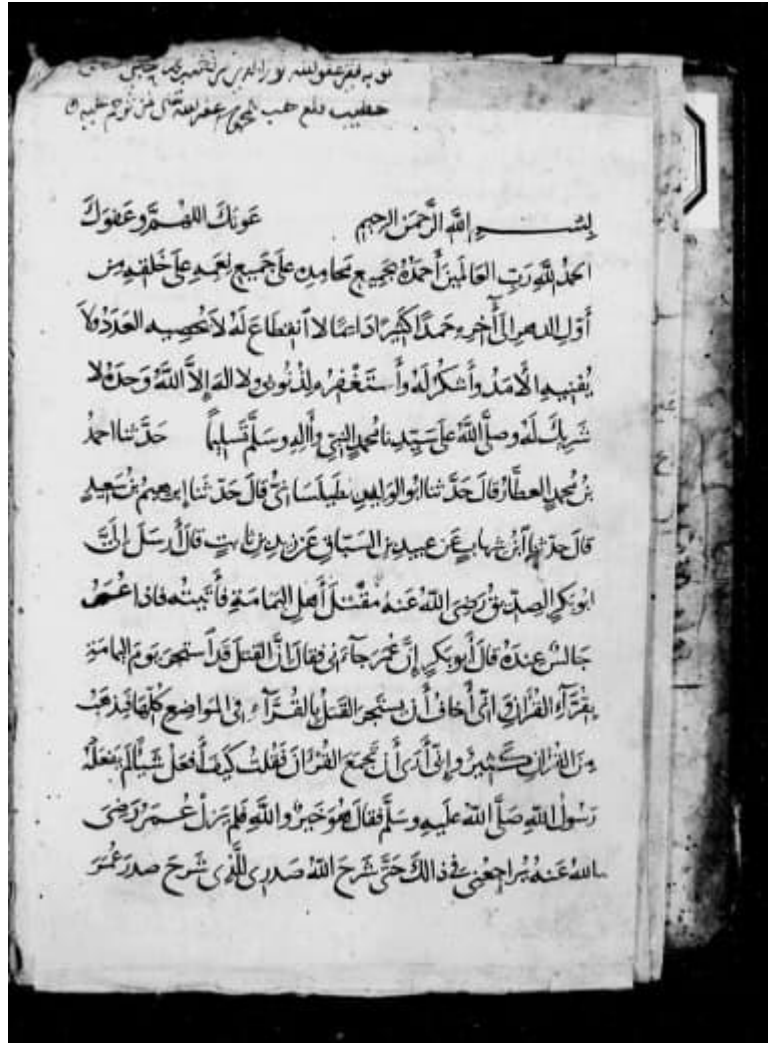 بسم الله الرَّحمَن الرحيم عَونَكَ اللهُمَّ وعَفوَكَ
احمدُ للهِ رَبِّ العَالمَينَ أَحمَدُهُ بجَميعِ مَحامدِه عَلىَ جَميعِ نِعَمِهِ عَلىَ خَلقِهِ مِن
أَوّلِ الدهرِ إلىَ آخِرِهِ حَمدًا كثيرًا دَائمًا لا اَنقطَاعَ لَهُ لاَ يُحصِيهِ العَدَدُ ولاَ
يُفنِيهِ الأمَدُ وأَشكرُ لَهُ وأَستَغفِرُه لِذنُوبي ولا الهَ إلاَّ اللَّهُ وَحدَهُ لا
شَرِيكَ لَهُ وصلَّى اللهُ عَلىَ سَيّدِنا مُحمدٍ النَّبِيّ وأالِهِ وسَلَّم تَسليماً حَدَّثنا احمدُ
بنُ مُحمدٍ العطَّارُ قالَ حَدَّثنا ابُو الوَليدِ الطيَالسَانيُّ قالَ حَدّثَنا إبرهيمُ بنُ سَعيدٍ
قالَ حدّثنا اَبنُ شهابٍ عَن عبيدِ بنِ السبّاقِ عَن زيدِ بنِ ثابتٍ قالَ أرسَلَ إلىَّ
ابو بَكرٍ الصِدّيقُ رَضىَ اللهُ عَنهُ مَقتَلَ أَهلِ اليَمامَةِ فأَتَيتُه فاذا عُمَرُ
جَالسٌ عِندَهُ قالَ أبوبَكرٍ إنَّ عُمَرَ جَآءَنى فقالَ إنَّ القَتلَ قَد اَستَحرَ يَومَ اليمامَةِ
بقُرَّآءِ القُرَْانِ وَ انّى أَخافُ أَن يَستَحرَ القَتلُ بِالقُرَّآءِ فى المَواضِعِ كُلّها فيَذهَبُ
مِنَ القُرَانِ كَثِيرٌ وإنّى أَرَى أَن تَجمَعَ القُرْانَ فَقُلتُ كَيفَ أَفعَلُ شَيئًا لَم يَفعَلْهُ
رَسُولُ اللهِ صَلَّى اللهُ عَلَيهِ وسَلَّم فقالَ هُوَ خَيرٌ واللَّهِ فلَم يَزَلْ عُمَرُ رَضىَ
اللهُ عَنهُ يُراجعُني فى ذالكَ حَتَّى شَرحَ اللهُ صَدرِى للَّذِى شَرحَ صَدرَ عُمَرَ